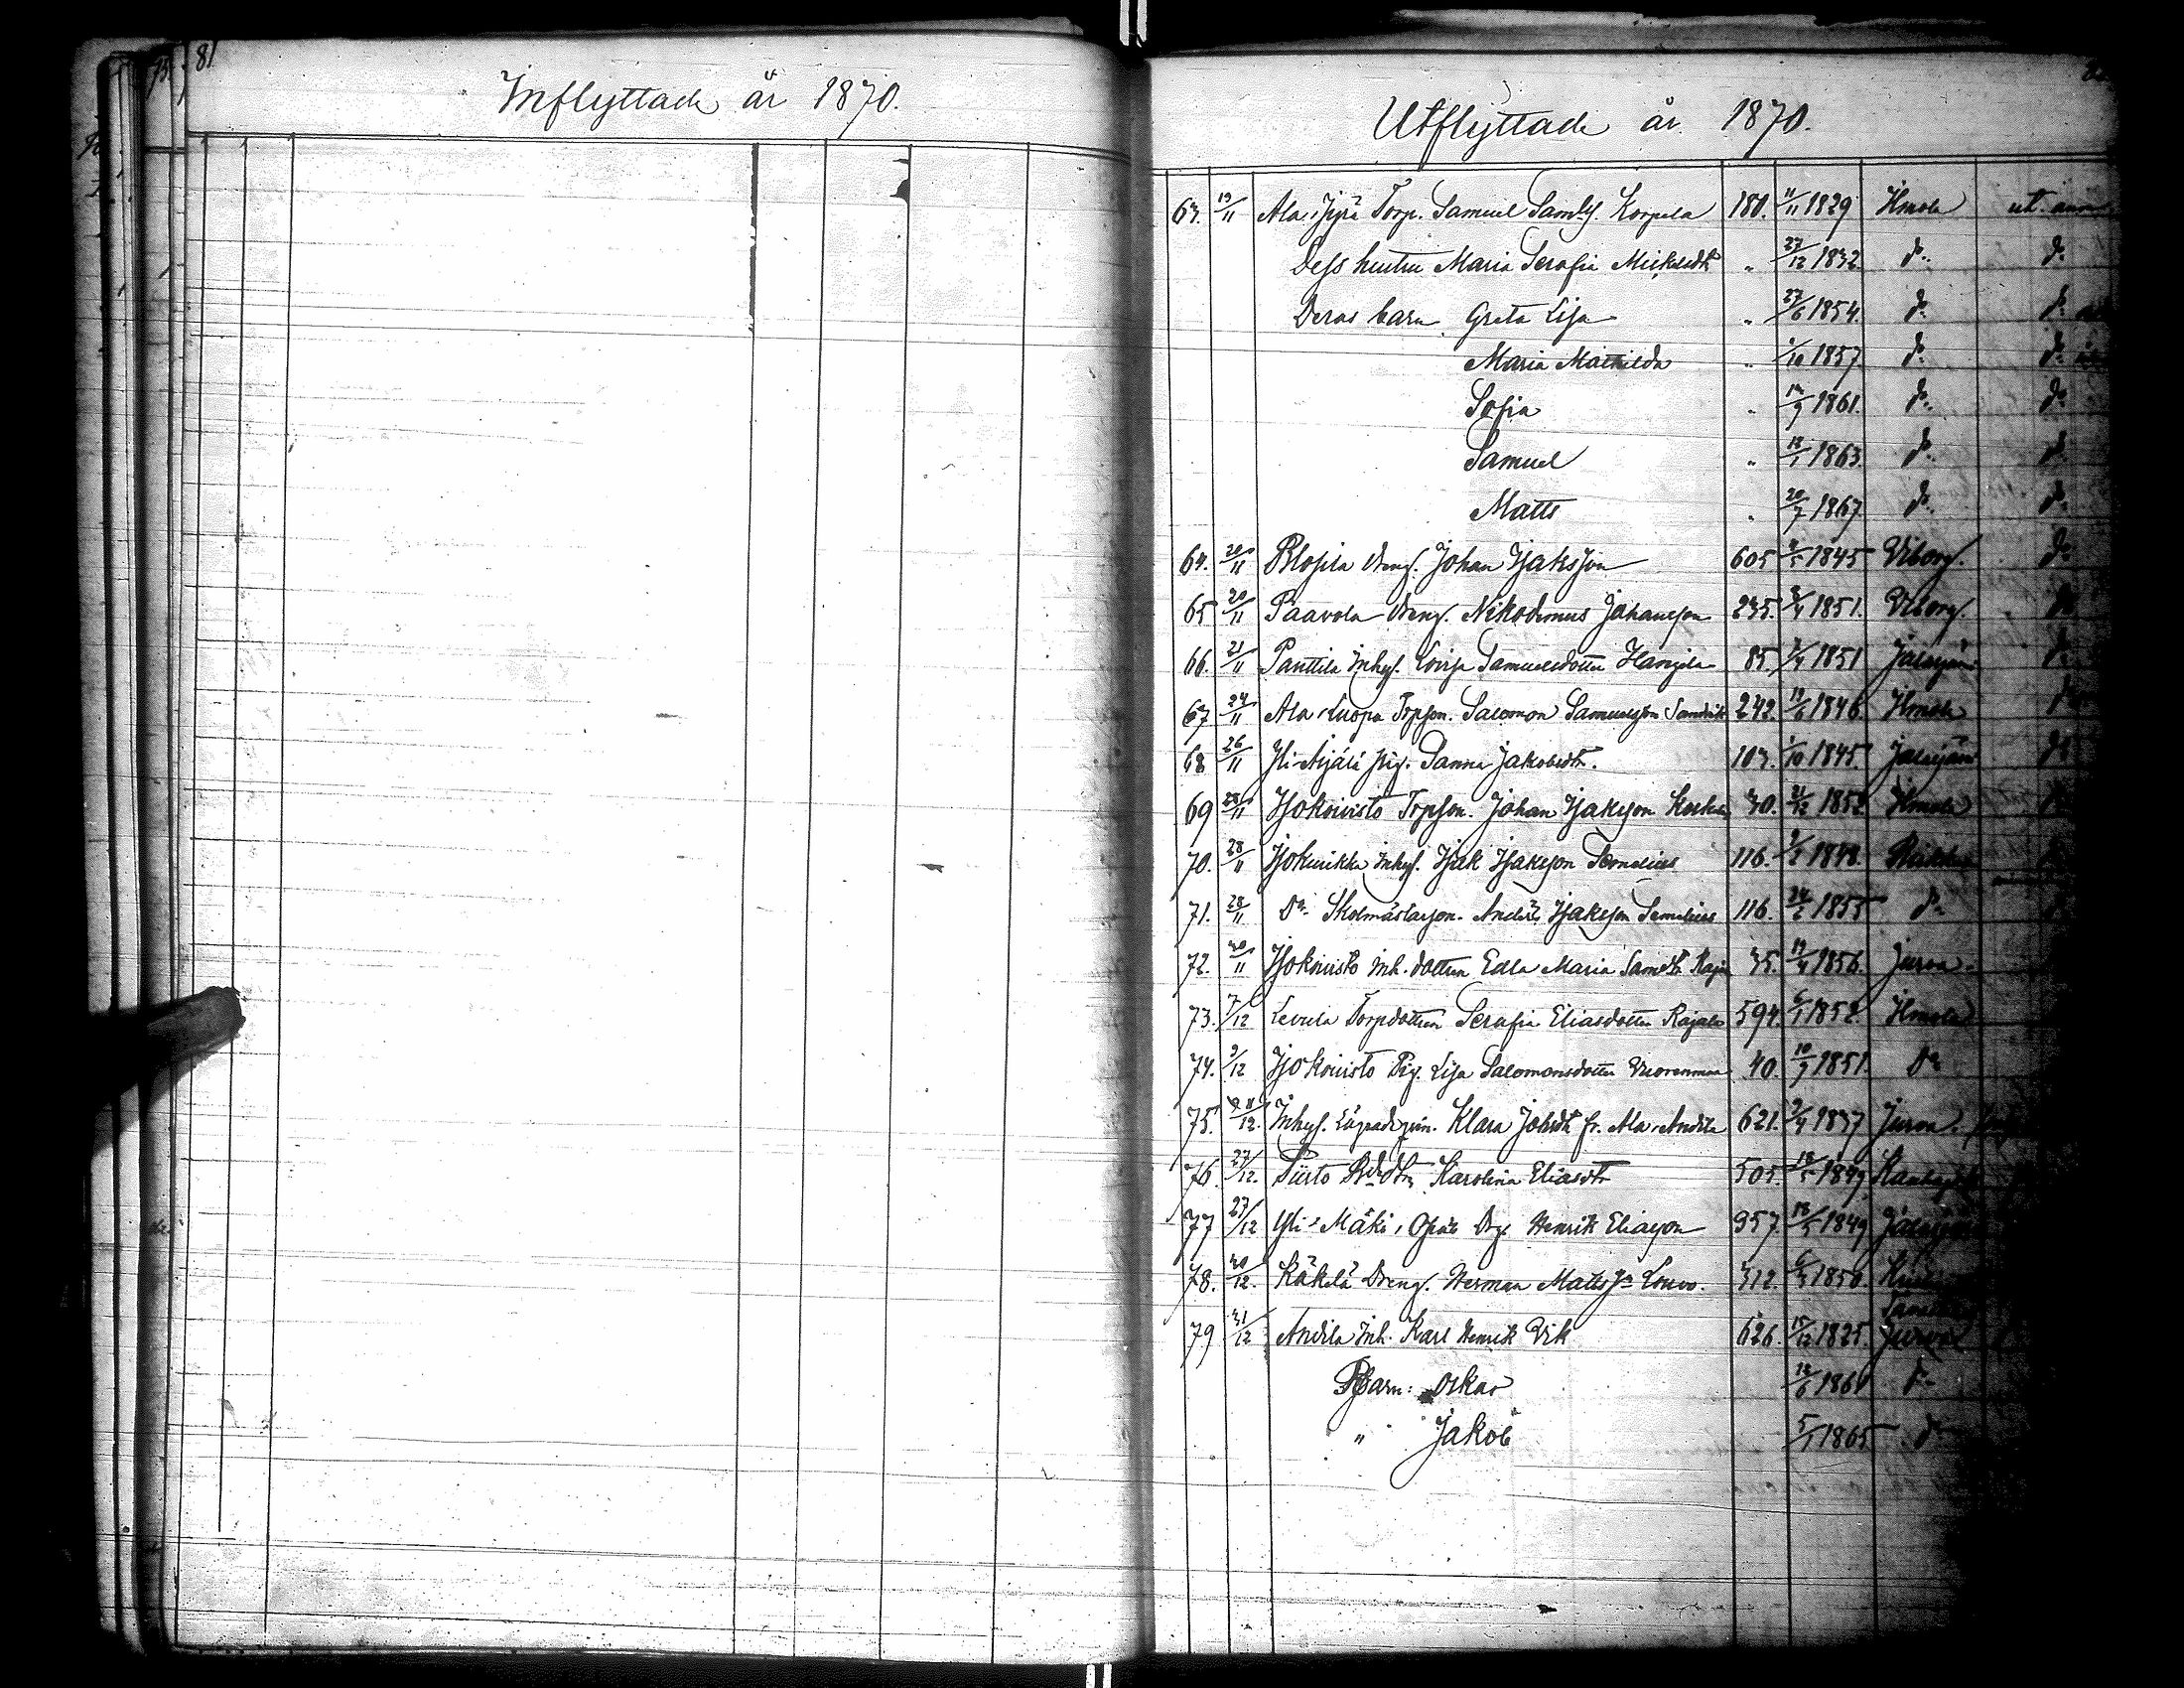 81
Inflyttade år 1870.
Utflyttade år 1870.
63. 19/11 Ala, Jyrä Torp. Samuel Saml:s. Korpela 180. 11/11 1829 Ilmola
Dess hustru Maria Serafia Mickelsdtr " 27/12 1832 d:o d:o
Deras barn Greta Lisa " 27/6 1854. d:o d:o
Maria Mathilda " 1/10 1857. d:o d:o
Sofia " 1861. d:o d:o
Samuel " 18/1 1863. d:o d:o
Matts " 20/7 1867 d:o d:o
64. 20/11 Dreng. Johan Isaksson 605 1845 Wiborg. d:o
65 20/11 Paavola Dreng. Nikodemus Johansson 235. 1851. Wiborg.
66. 21/11 Panttila Inhys. Lovisa Samuelsdotter 85. 1851 Jalasjärvi
67 24/11 Ala, Luopa Torpson. Salomon Samuelsson 242. 19/6 1846. Ilmola
68 26/11 Yli-Äijälä pig. Sanna Jakobsdtr. 103. 1/10 1845. Jalasjärvi
69 28/11 Isokoivisto Torpson. Johan Isaksson 30. 21/12 1852 Ilmola
70. 28/11 Inhys. Isak Isaksson 116. 1848.
71. 28/11 D:o Skolmästarson. Anders Isaksson 116. 24/2 1855 d:o
72. 30/11 Isokoivisto Inh. dottern Edla Maria Samdtr 35. 19/4 1856. Jurva
73. 7/12 Levula Torpdottern Serafia Eliasdotter Rajala 594. 6/1 1852. Ilmola
74. 9/12 Isokoivisto Pig. Lisa Salomonsdotter Vuorenmaa 40. 10/9 1851. D:o
75. /12. Inhys. Klara Johsdtr fr. Ala, Andila 621. 1837 Jurva.
76. 27/12. Piirto Karolina Eliasdtr 505. 1849
77 27/12 Yli, Mäki, Drg. Henrik Eliasson 957. 18/5 1849 Jalasjärvi
78. 30/12. Käkelä Dreng. Herman Mattss:n Louvo. 312. 1850.
79 31/12 Andila Inh. Karl Henrik Vik 626. 15/12 1825. Jurva
Barn: Oskar 18/6 1861 d:o
" Jakob 5/1 1865 d:o